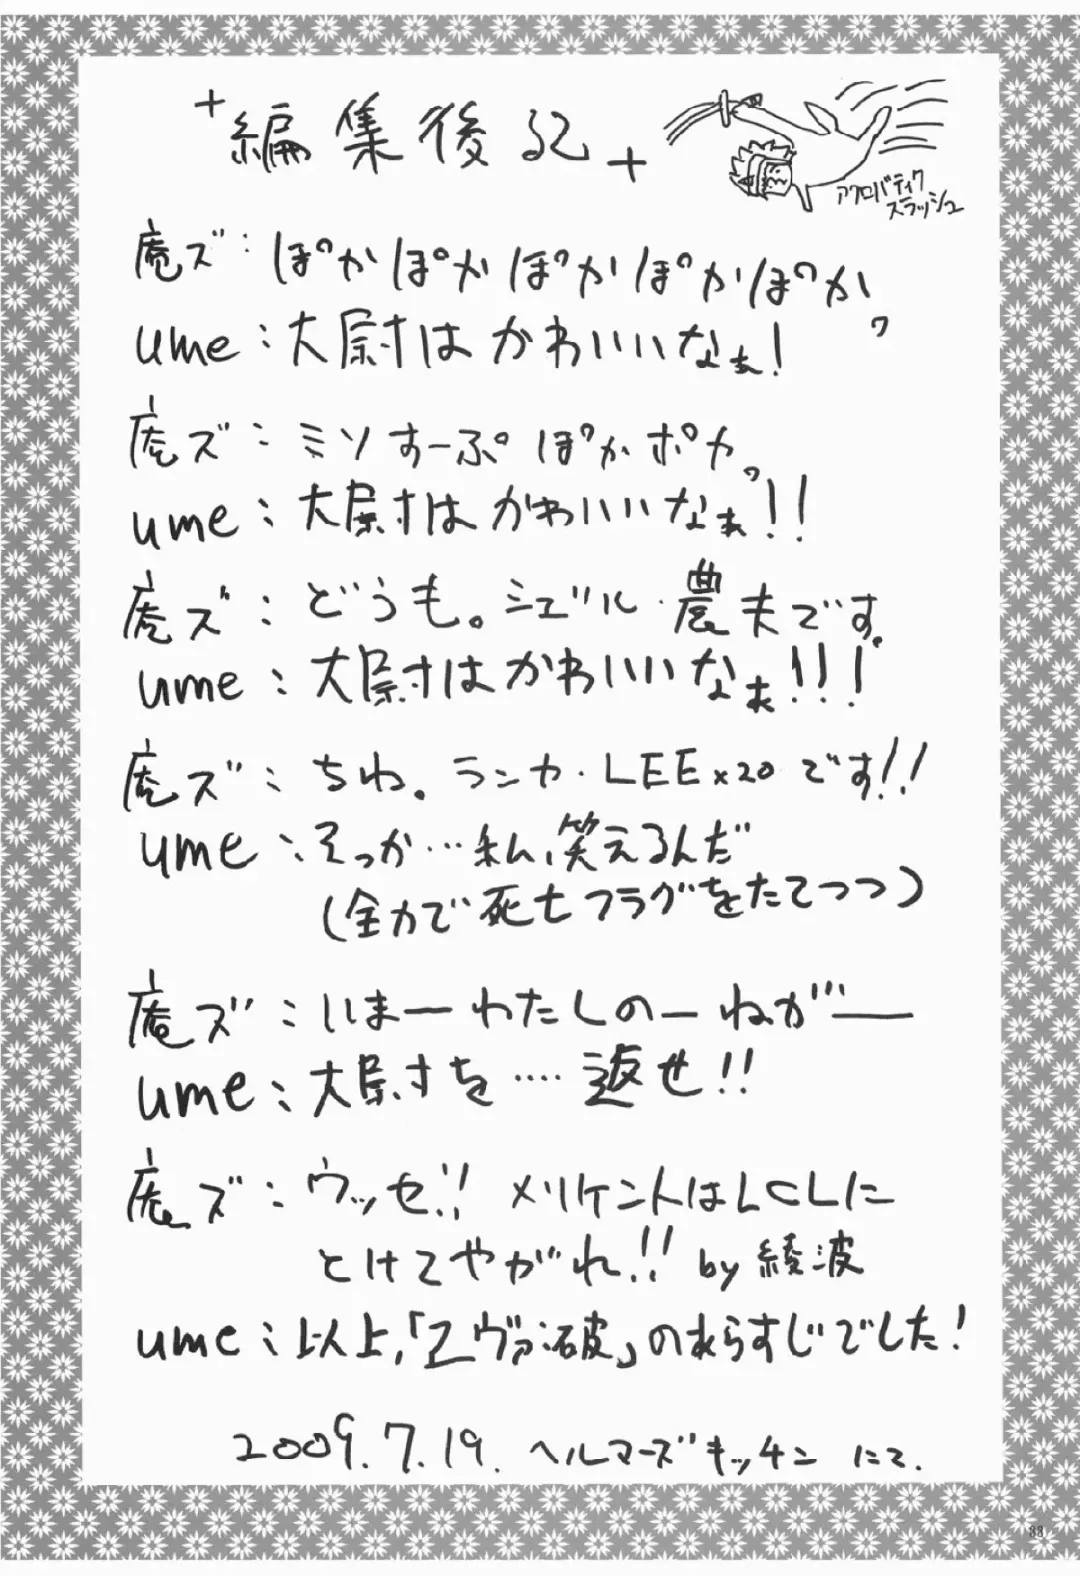 編集後記
アクロバティック
スラッシュ
庵ズ:ぽかぽかぽかぽかぽか。
ume:大尉はかわいいなぁ!
庵ズ:ミソすーぷぽかポカ。
ume:大尉はかわいいなぁ!!
庵ズ:どうも。シュゲル・農夫です。
ume:大尉はかわいいなぁ!!!
庵ズ:ちわ。ランカ・LEE×20です!!
ume:そっか…私、笑えるんだ
(全力で死亡フラグをたてつつ)
庵ズ:いまーわたしのーねがー
ume:大尉を‥‥返せ!!
庵ズ:ウッセ!! メリケントはLCLに
とけてやがれ!! by綾波
ume:以上,「ヱヴァ:破」のあらすじでした!
2009.7.19. ヘルマーズキッチン にて.
33